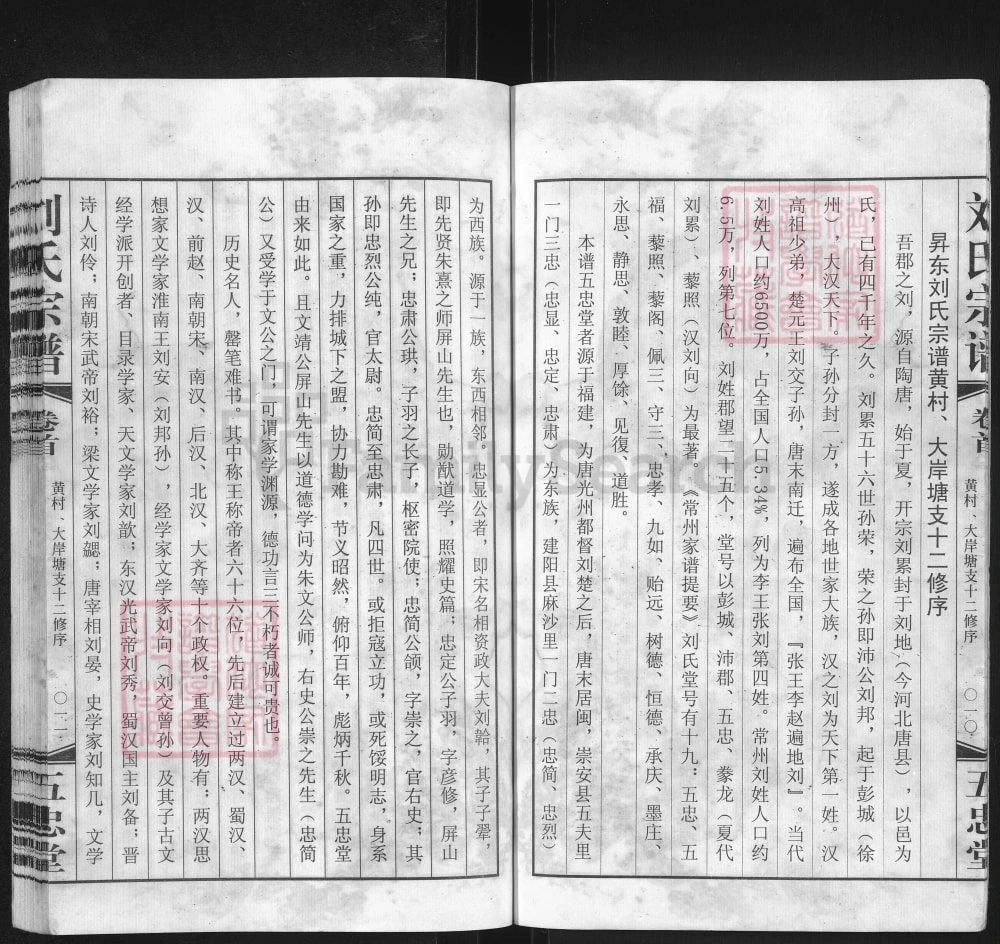 刘氏宗谱
卷首
黄村、大岸塘支十二修序
〇一〇
五忠堂
昇东刘氏宗谱黄村、大岸塘支十二修序
吾郡之刘，源自陶唐，始于夏，开宗刘累封于刘地（今河北唐县），以邑为
氏，已有四千年之久。刘累五十六世孙荣，荣之孙即沛公刘邦，起于彭城（徐
州），大汉天下。子孙分封一方，遂成各地世家大族，汉之刘为天下第一姓。汉
高祖少弟，楚元王刘交子孙，唐末南迁，遍布全国，『张王李赵遍地刘』。当代
刘姓人口约6500万，占全国人口5.34%，列为李王张刘第四姓。常州刘姓人口约
6.5万，列第七位。刘姓郡望二十五个，堂号以彭城、沛郡、五忠、豢龙（夏代
刘累）、藜照（汉刘向）为最著。《常州家谱提要》刘氏堂号有十九：五忠、五
福、藜照、藜阁、佩三、守三、忠孝、九如、贻远、树德、恒德、承庆、墨庄、
永思、静思、敦睦、厚馀、见復、道胜。
本谱五忠堂者源于福建，为唐光州都督刘楚之后，唐末居闽，崇安县五夫里
一门三忠（忠显、忠定、忠肃）为东族，建阳县麻沙里一门二忠（忠简、忠烈）
为西族。源于一族，东西相邻。忠显公者，即宋名相资政大夫刘韐，其子子翚，
即先贤朱熹之师屏山先生也，勋猷道学，照耀史篇；忠定公子羽，字彦修，屏山
先生之兄；忠肃公珙，子羽之长子，枢密院使；忠简公颌，字崇之，官右史；其
孙即忠烈公纯，官太尉。忠简至忠肃，凡四世。或拒寇立功，或死馁明志，身系
国家之重，力排城下之盟，协力勘难，节义昭然，俯仰百年，彪炳千秋。五忠堂
由来如此。且文靖公屏山先生以道德学问为朱文公师，右史公崇之先生（忠简
公）又受学于文公之门，可谓家学渊源，德功言三不朽者诚可贵也。
历史名人，罄笔难书。其中称王称帝者六十六位，先后建立过两汉、蜀汉、
汉、前赵、南朝宋、南汉、后汉、北汉、大齐等十个政权。重要人物有：两汉思
想家文学家淮南王刘安（刘邦孙），经学家文学家刘向（刘交曾孙）及其子古文
经学派开创者、目录学家、天文学家刘歆；东汉光武帝刘秀，蜀汉国主刘备；晋
诗人刘伶；南朝宋武帝刘裕；梁文学家刘勰；唐宰相刘晏，史学家刘知几，文学
刘氏宗谱
卷首
黄村、大岸塘支十二修序
〇一一
五忠堂
FamilySearch